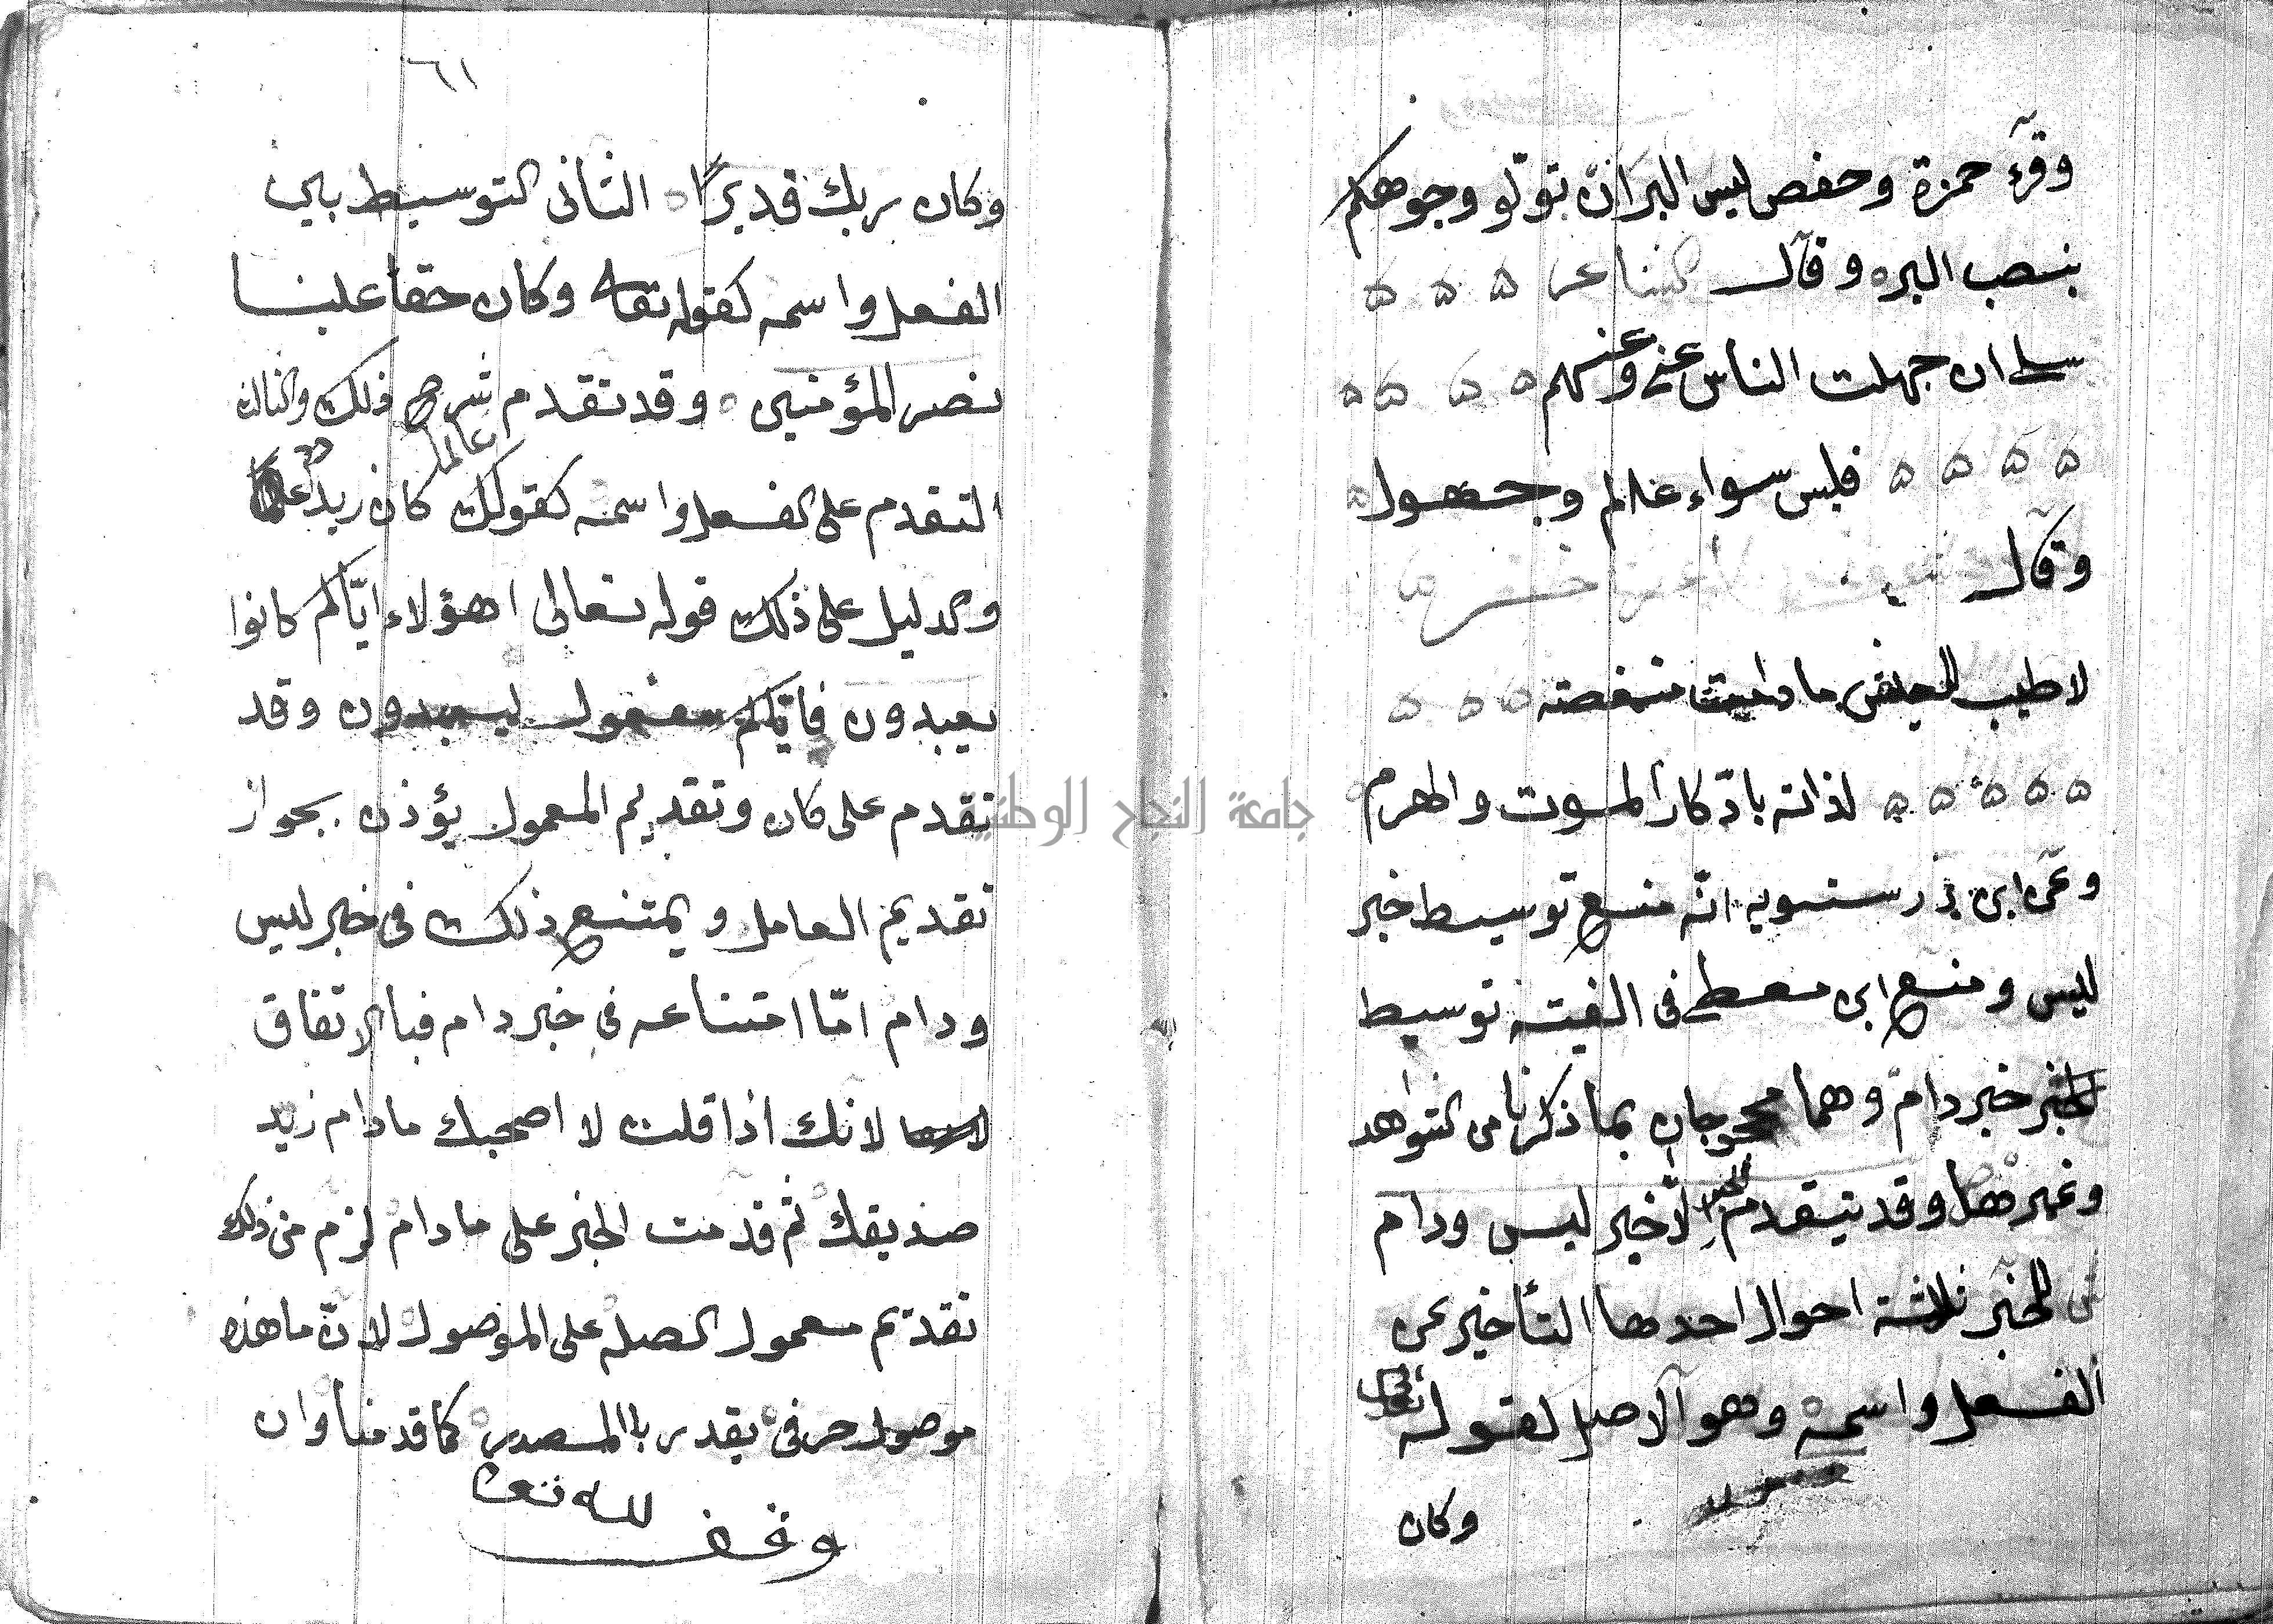 وقرء حمزة وحفص ليس البر ان تولّو وجوهكم
بنصب البر وقال الشاعر
سلي ان جهلت الناس عني وعنهم
فليس سواء عالم وجهول
وقال
لا طيب للعيش ما دامت منغصة
لذاته بادّكار الموت والهرم
وعن ابن درستويه انّه منع توسيط خبر
ليس ومنع ابن معط في الفيته توسيط
خبر دام وهما محجوجان بما ذكرنا من الشواهد
وغيرها وقد يتقدم الخبر الّا خبر ليس ودام
ش للخبر ثلاثة احوال احدها التأخير عن
الفعل واسمه وهو الاصل لقوله تعالى
وكان
٦١
وكان ربك قديرًا الثانى التوسيط بين
الفعل واسمه كقوله تعالى وكان حقا علينا
نصر المؤمنين وقد تقدم شرح ذلك والثالث
التقدم على الفعل واسمه كقولك عالما كان زيد
والدليل على ذلك قوله تعالى اهؤلاء ايّاكم كانوا
يعبدون فايّاكم مفعول ليعبدون وقد
تقدم على كان وتقديم المعمول يؤذن بجواز
تقديم العامل ويمتنع ذلك فى خبر ليس
ودام امّا امتناعه في خبر دام فبالاتفاق
لانك اذا قلت لا اصحبك ما دام زيد
صديقك ثم قدمت الخبر على ما دام لزم من ذلك
تقديم معمول الصلة على الموصول لانّ ما هذه
موصول حرفى يقدر بالمصدر كما قدمنا وان
وقف لله تعا
جامعة النجاح الوطنية